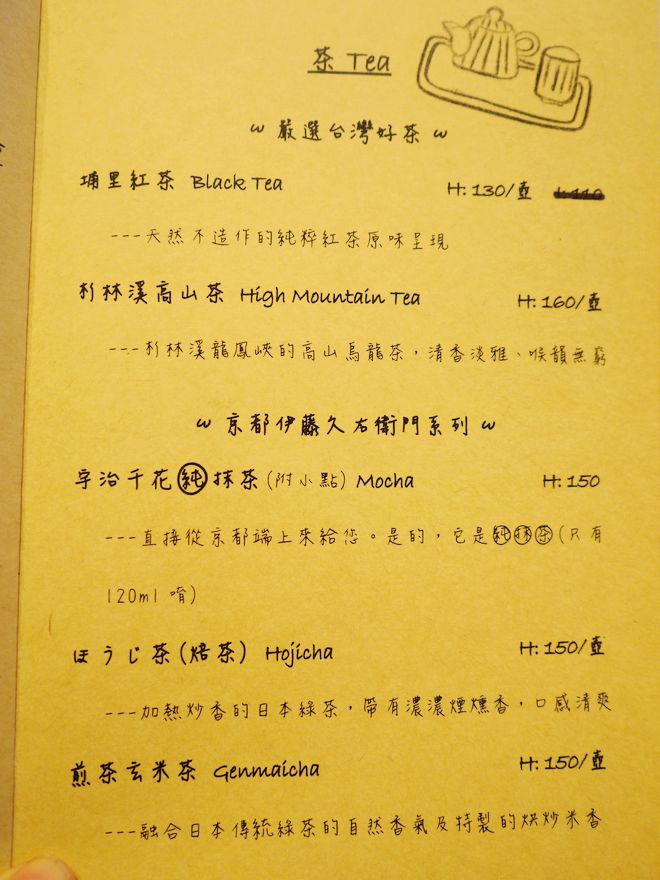 茶 Tea
~ 嚴選台灣好茶 ~
埔里紅茶 Black Tea H: 130/壺
---天然不造作的純粹紅茶原味呈現
杉林溪高山茶 High Mountain Tea H: 160/壺
---杉林溪龍鳳峽的高山烏龍茶，清香淡雅、喉韻無窮
~ 京都伊藤久右衛門系列 ~
宇治千花純抹茶(附小點) Mocha H: 150
---直接從京都端上來給您。是的，它是純抹茶(只有
120ml 唷)
ほうじ茶(焙茶) Hojicha H: 150/壺
---加熱炒香的日本綠茶，帶有濃濃煙燻香，口感清爽
煎茶玄米茶 Genmaicha H: 150/壺
---融合日本傳統綠茶的自然香氣及特製的烘炒米香